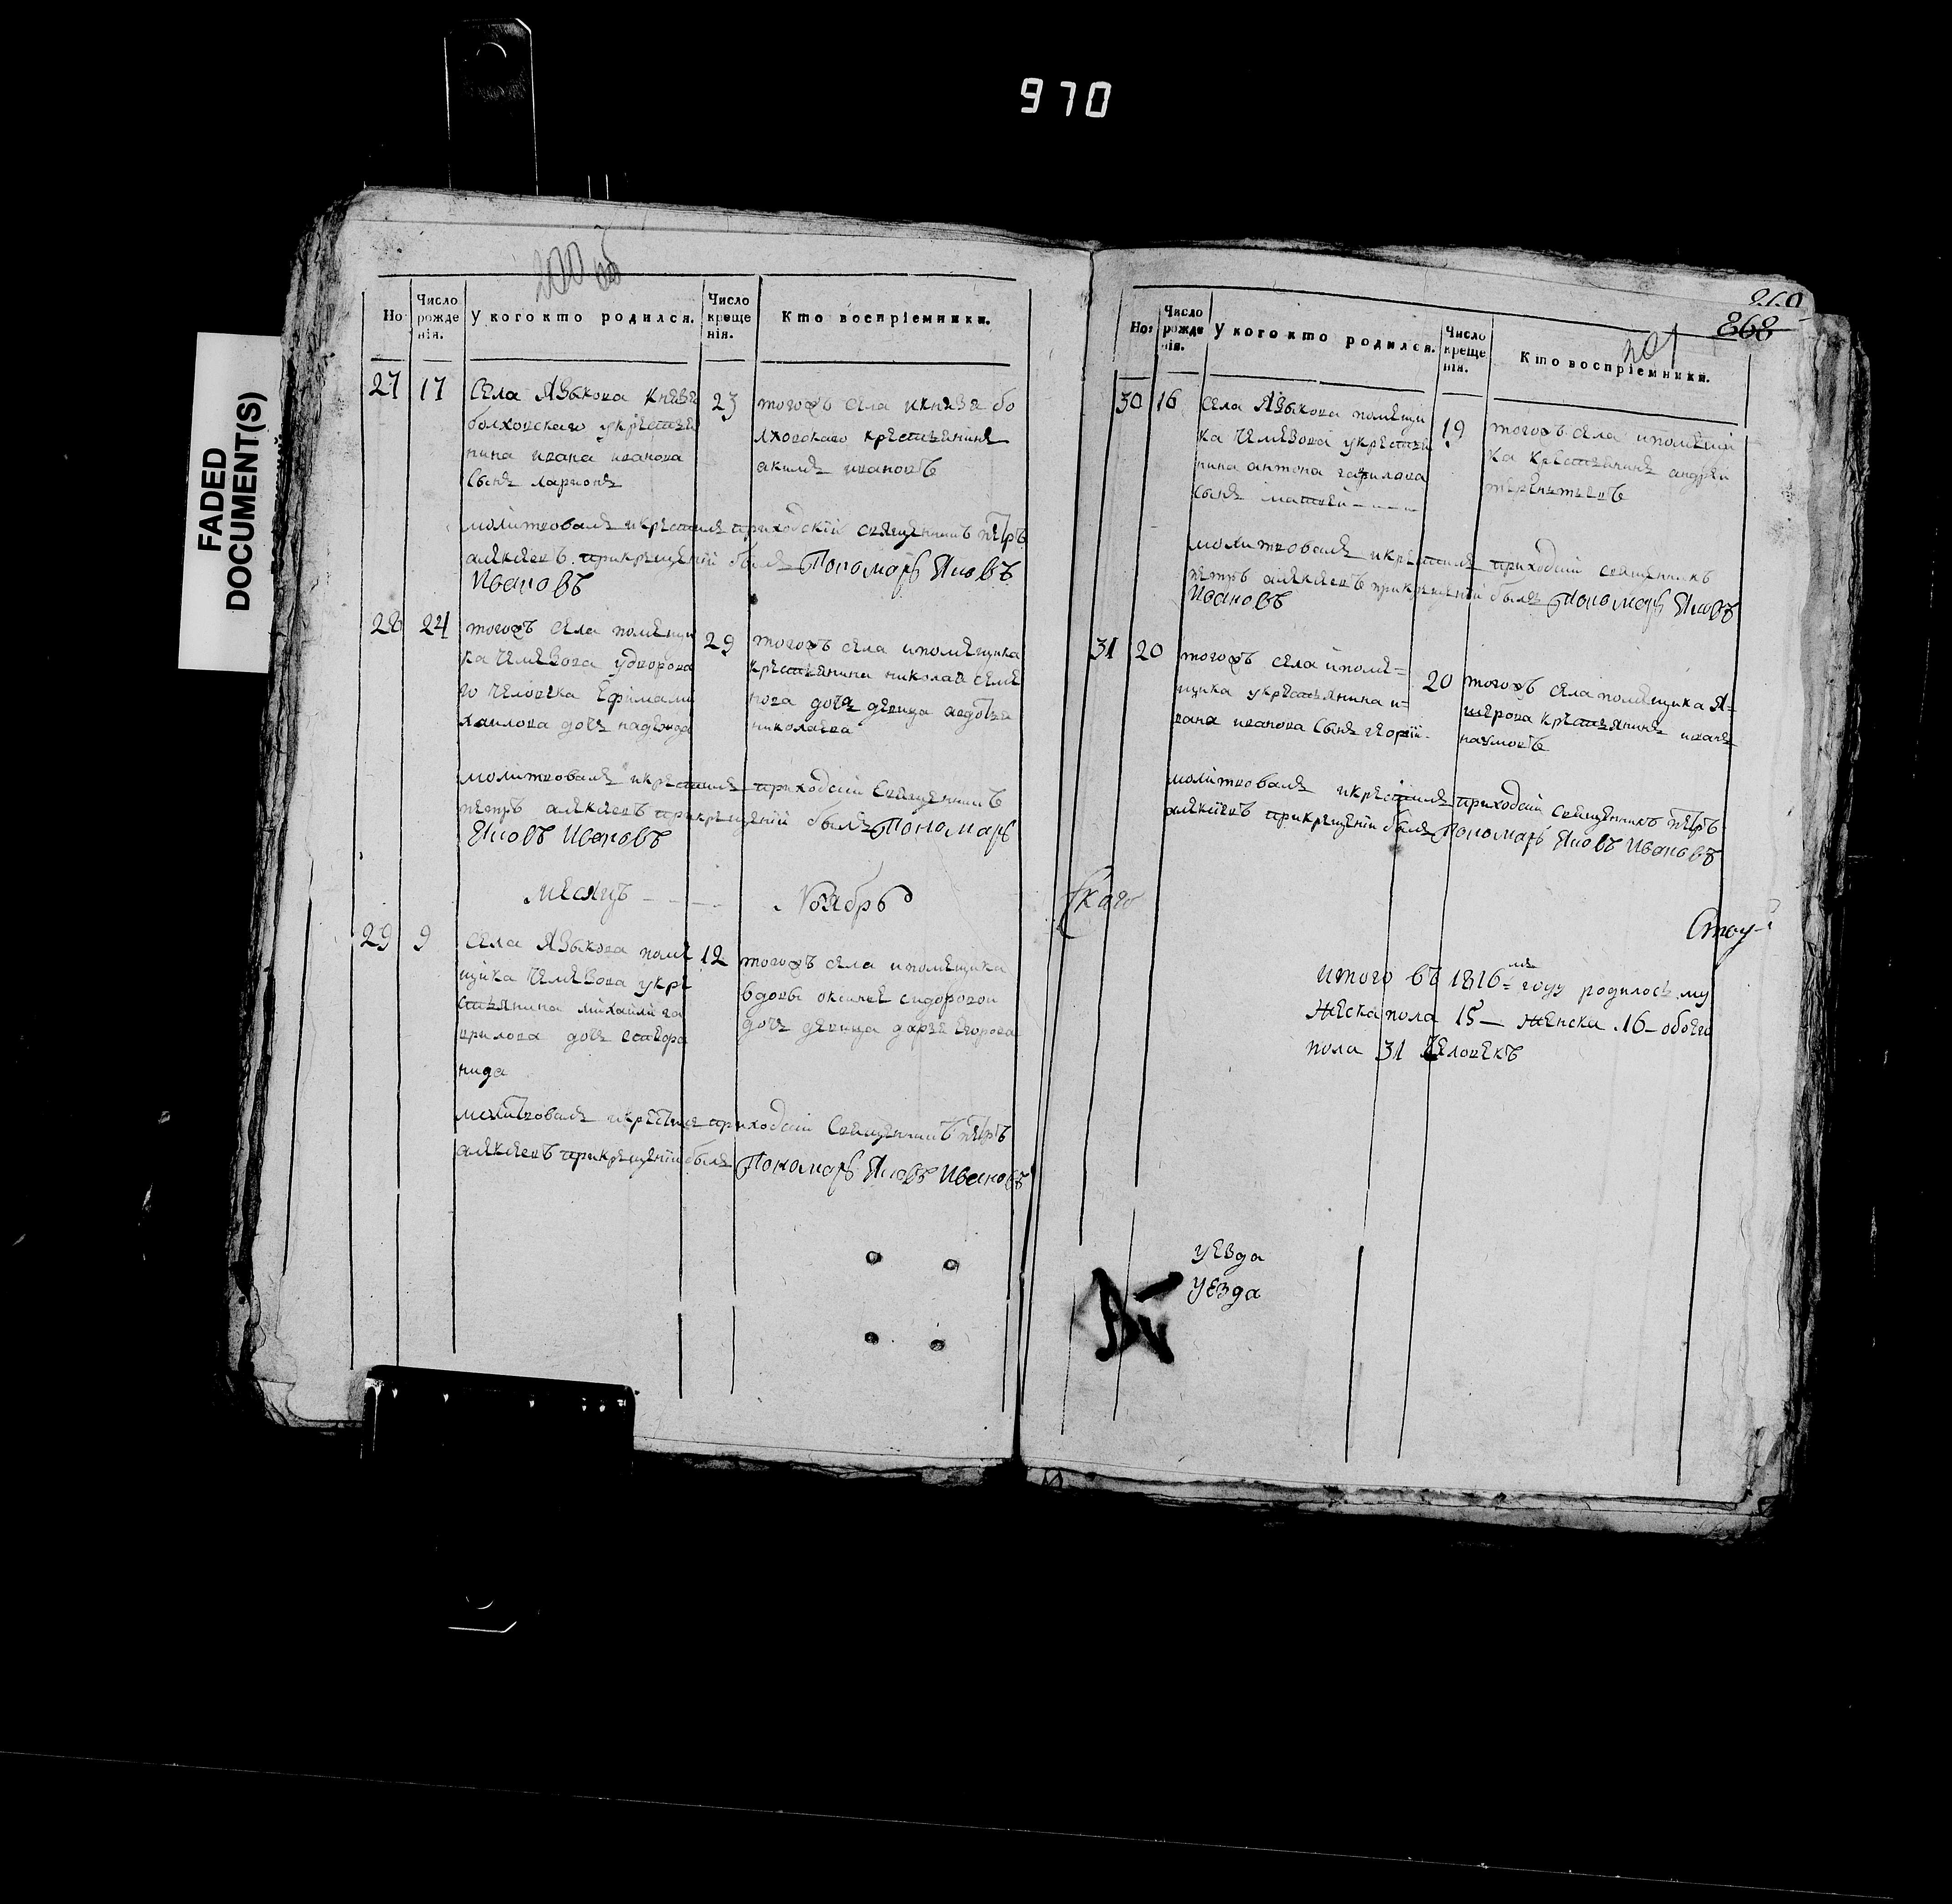 970
FADED
DOCUMENT(S)
200 об
Но
Число рожденія.
У кого кто родился.
Число крещенія.
Кто воспріемники.
27 17
Села Языкова Князя
болховскаго укрестья
нина ивана иванова
Сынъ ларионъ
23
тогожъ села икнязя бо
лховскаго крестьянинъ
акимъ ивановъ
молитвовалъ икрестилъ приходскій священникъ петръ
алексеевъ прикрещеніи былъ Пономарь Яковъ
Ивановъ
28 24
тогожъ села помещи
ка удворова
го человека Ефима ми
хаилова дочь надежда
29
тогожъ села ипомещика
крестьянина николая семе
нова дочь девица авдотья
николаева
молитвовалъ икрестилъ приходскій Священникъ
петръ алексеевъ прикрещеніи былъ Пономарь
Яковъ Ивановъ
месяцъ Ноябрь
29 9
села Языкова поме
щика укре
стьянина михаила га
врилова дочь
нида
12
тогожъ села ипомещика
вдовы оксиньи сидоровой
дочь девица дарья Егорова
молитвовалъ икрестилъ приходскій Священникъ петръ
алексеевъ прикрещеніи былъ Пономарь Яковъ Ивановъ
260
868
201
Но:
Число рожденія.
У кого кто родился.
Число крещенія.
Кто воспріемники.
30 16
села Языкова помещи
ка укрестья
нина антона гаврилова
сынъ матвей
19
тогожъ села ипомещи
ка крестьянинъ андрей
терентьевъ
молитвовалъ икрестилъ приходскій священникъ
петръ алексеевъ прикрещеніи былъ Пономарь Яковъ
Ивановъ
31 20
тогожъ села ипоме=
щика укрестьянина и=
вана иванова Сынъ георгій
20
тогожъ села помещика
крестьянинъ иванъ
наумовъ
молитвовалъ икрестилъ приходскій Священникъ петръ
алексеевъ прикрещеніи былъ Пономарь Яковъ Ивановъ
скаго
Итого въ 1816=мъ году родилось му
жеска пола 15 — Женска 16 — обоего
пола 31 человекъ
уезда
уезда